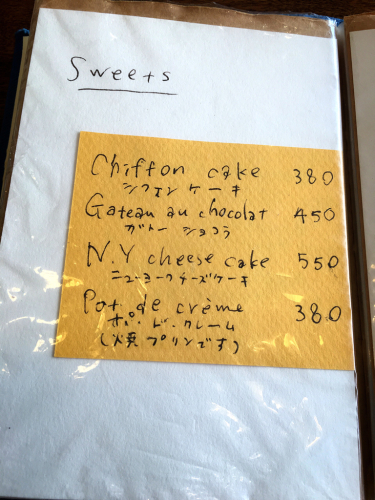 Sweets
Chiffon cake 380
シフォンケーキ
Gateau au chocolat 450
ガトーショコラ
N.Y cheese cake 550
ニューヨークチーズケーキ
Pot de crème 380
ポ・ド・クレーム
(焼プリンです)